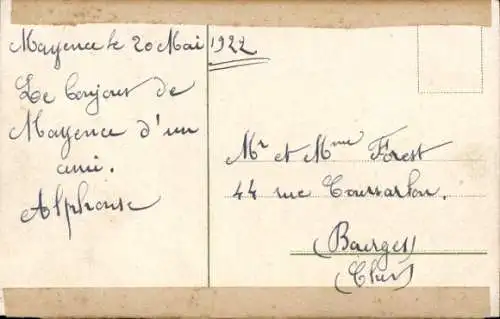 Mayence le 20 Mai 1922
Le bonjour de
Mayence d'un
ami.
Alphonse
Mr et Mme Forest
44 rue Coursarlon.
(Bourges)
(Cher)